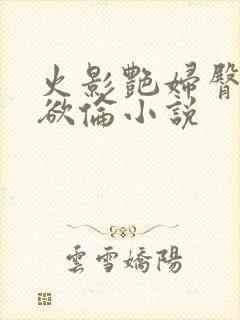 火影艷婦臀
欲倫小説
雲雪嬌陽